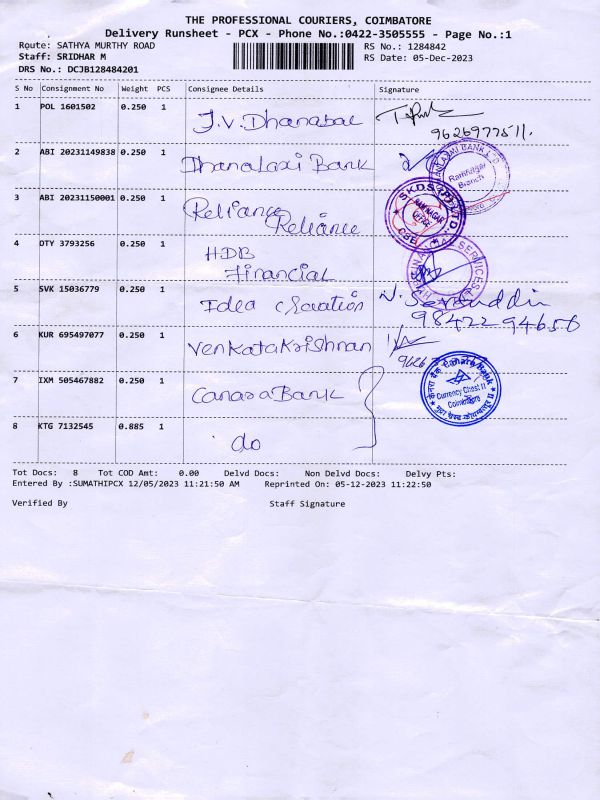 THE PROFESSIONAL COURIERS, COIMBATORE
Delivery Runsheet - PCX - Phone No.:0422-3505555 - Page No.:1
Route: SATHYA MURTHY ROAD RS No.: 1284842
Staff: SRIDHAR M RS Date: 05-Dec-2023
DRS No.: DCJB128484201
S No Consignment No Weight PCS Consignee Details Signature
1 POL 1601502 0.250 1 J.V. Dhanabal
9626977511.
2 ABI 20231149838 0.250 1 Dhanalaxi Bank
Ramnagar
Branch
3 ABI 20231150001 0.250 1 Reliance
Reliance
SKDS (P) LTD
RAM NAGAR
CBB
4 DTY 3793256 0.250 1 HDB
Financial
SERVICES
5 SVK 15036779 0.250 1 Idea
98422 94656
6 KUR 695497077 0.250 1 Venkatakrishnan
9626
7 IXM 505467882 0.250 1 Canara Bank
केनरा बैंक Canara Bank
Currency Chest II
Coimbatore
8 KTG 7132545 0.885 1 do
Tot Docs: 8 Tot COD Amt: 0.00 Delvd Docs: Non Delvd Docs: Delvy Pts:
Entered By :SUMATHIPCX 12/05/2023 11:21:50 AM Reprinted On: 05-12-2023 11:22:50
Verified By Staff Signature